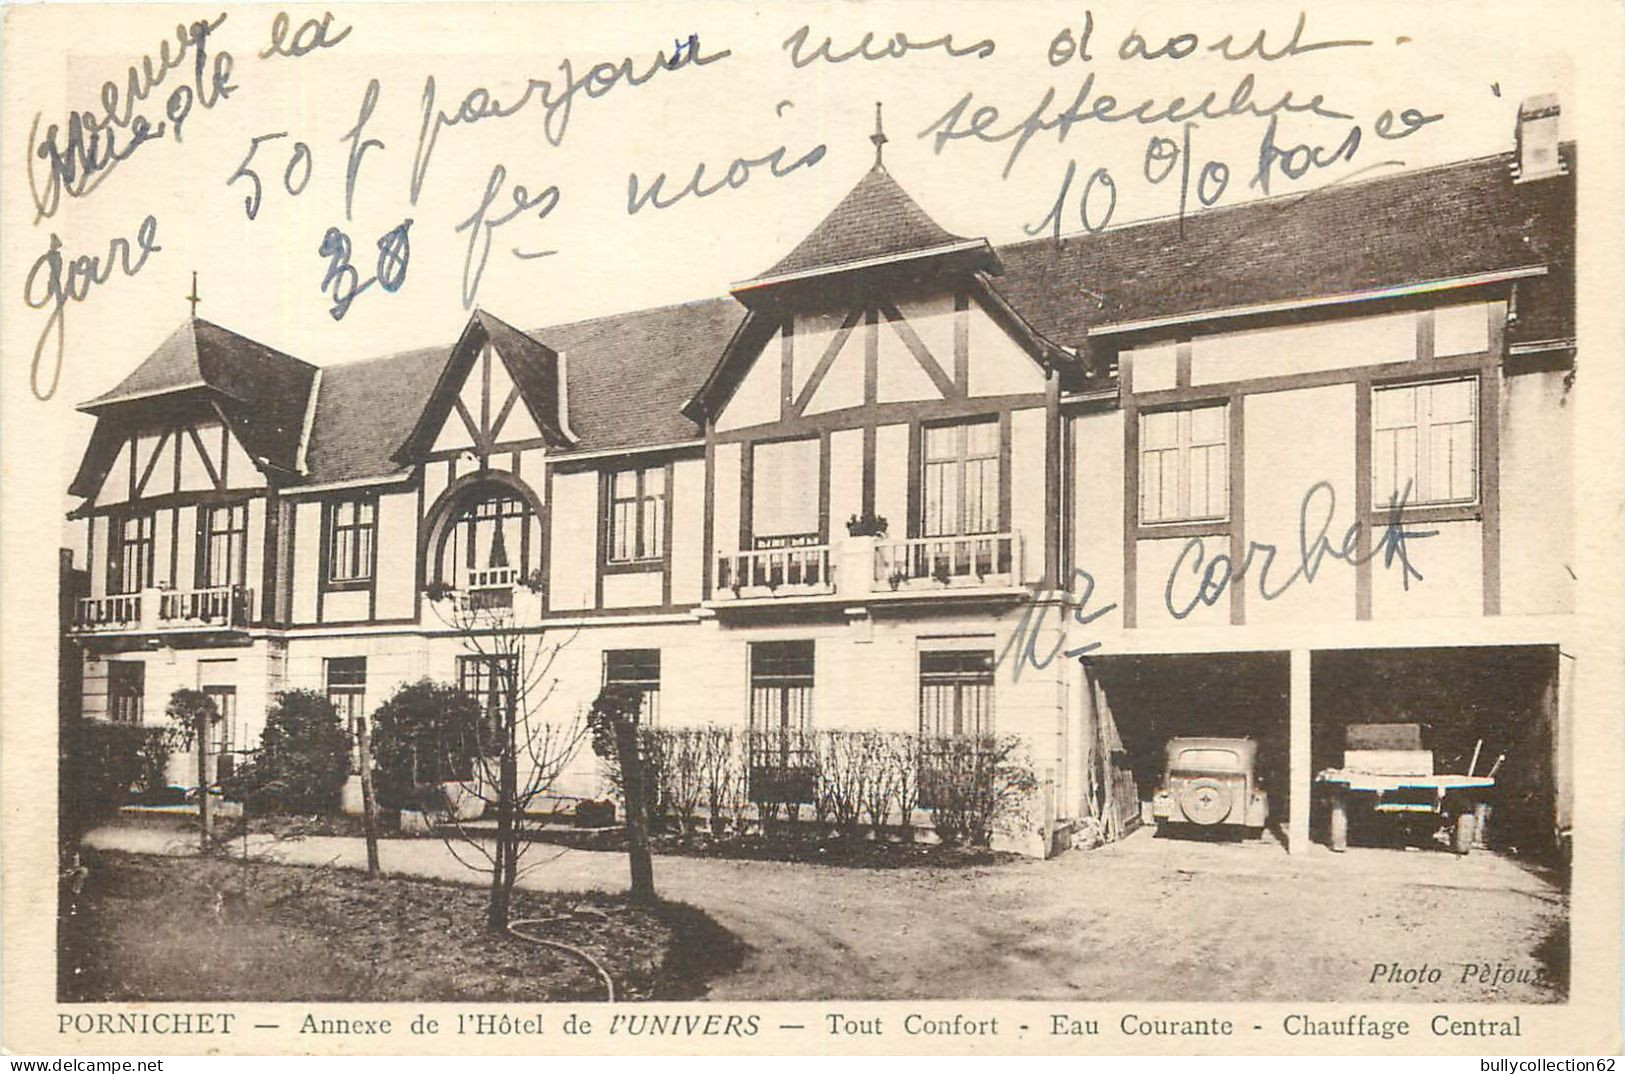 Avenue de la
gare
50 f par jour mois d'aout
30 fcs mois septembre
10 % taxe
Mr Corbet
Photo Pèjoux
PORNICHET — Annexe de l'Hôtel de l'UNIVERS — Tout Confort - Eau Courante - Chauffage Central
bullycollection62